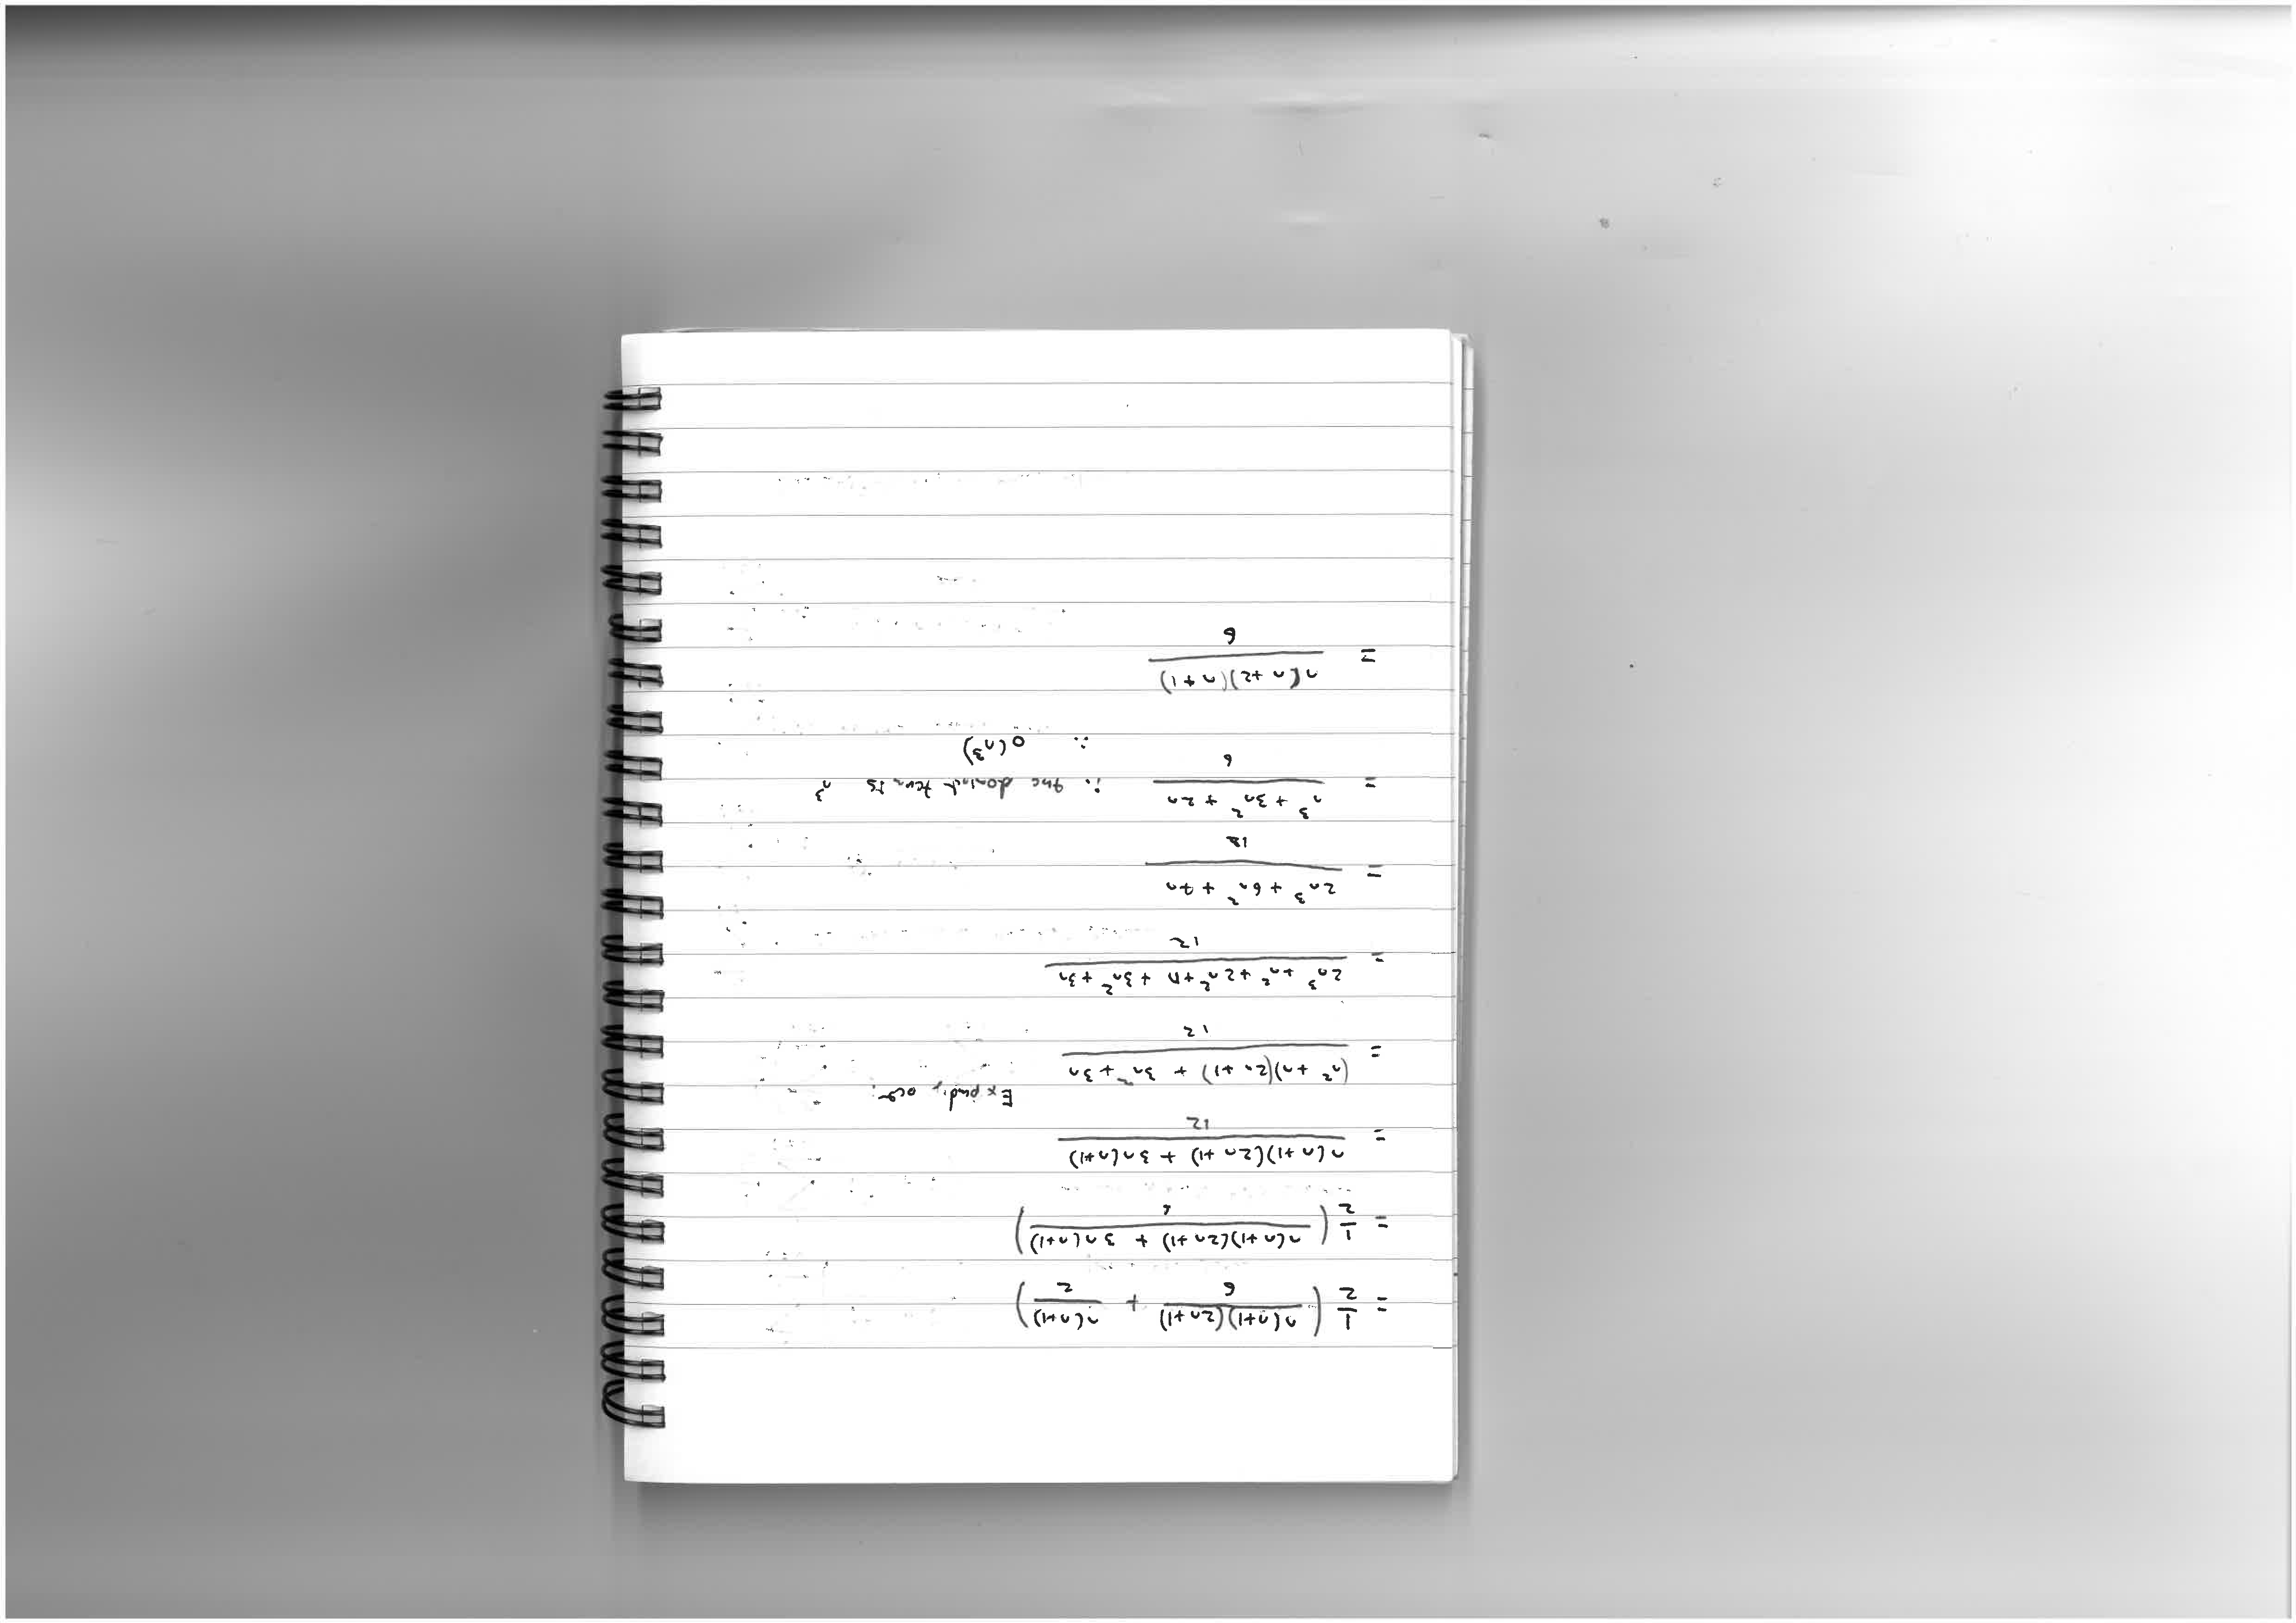 = 1/2 ( n(n+1)(2n+1)/6 + n(n+1)/2 )
= 1/2 ( n(n+1)(2n+1) + 3n(n+1) / 6 )
= n(n+1)(2n+1) + 3n(n+1) / 12
= (n² + n)(2n+1) + 3n² + 3n / 12
= 2n³ + n² + 2n² + n + 3n² + 3n / 12
= 2n³ + 6n² + 4n / 12
= n³ + 3n² + 2n / 6 ∴ the term is n³
∴ O(n³)
= n(n+2)(n+1) / 6